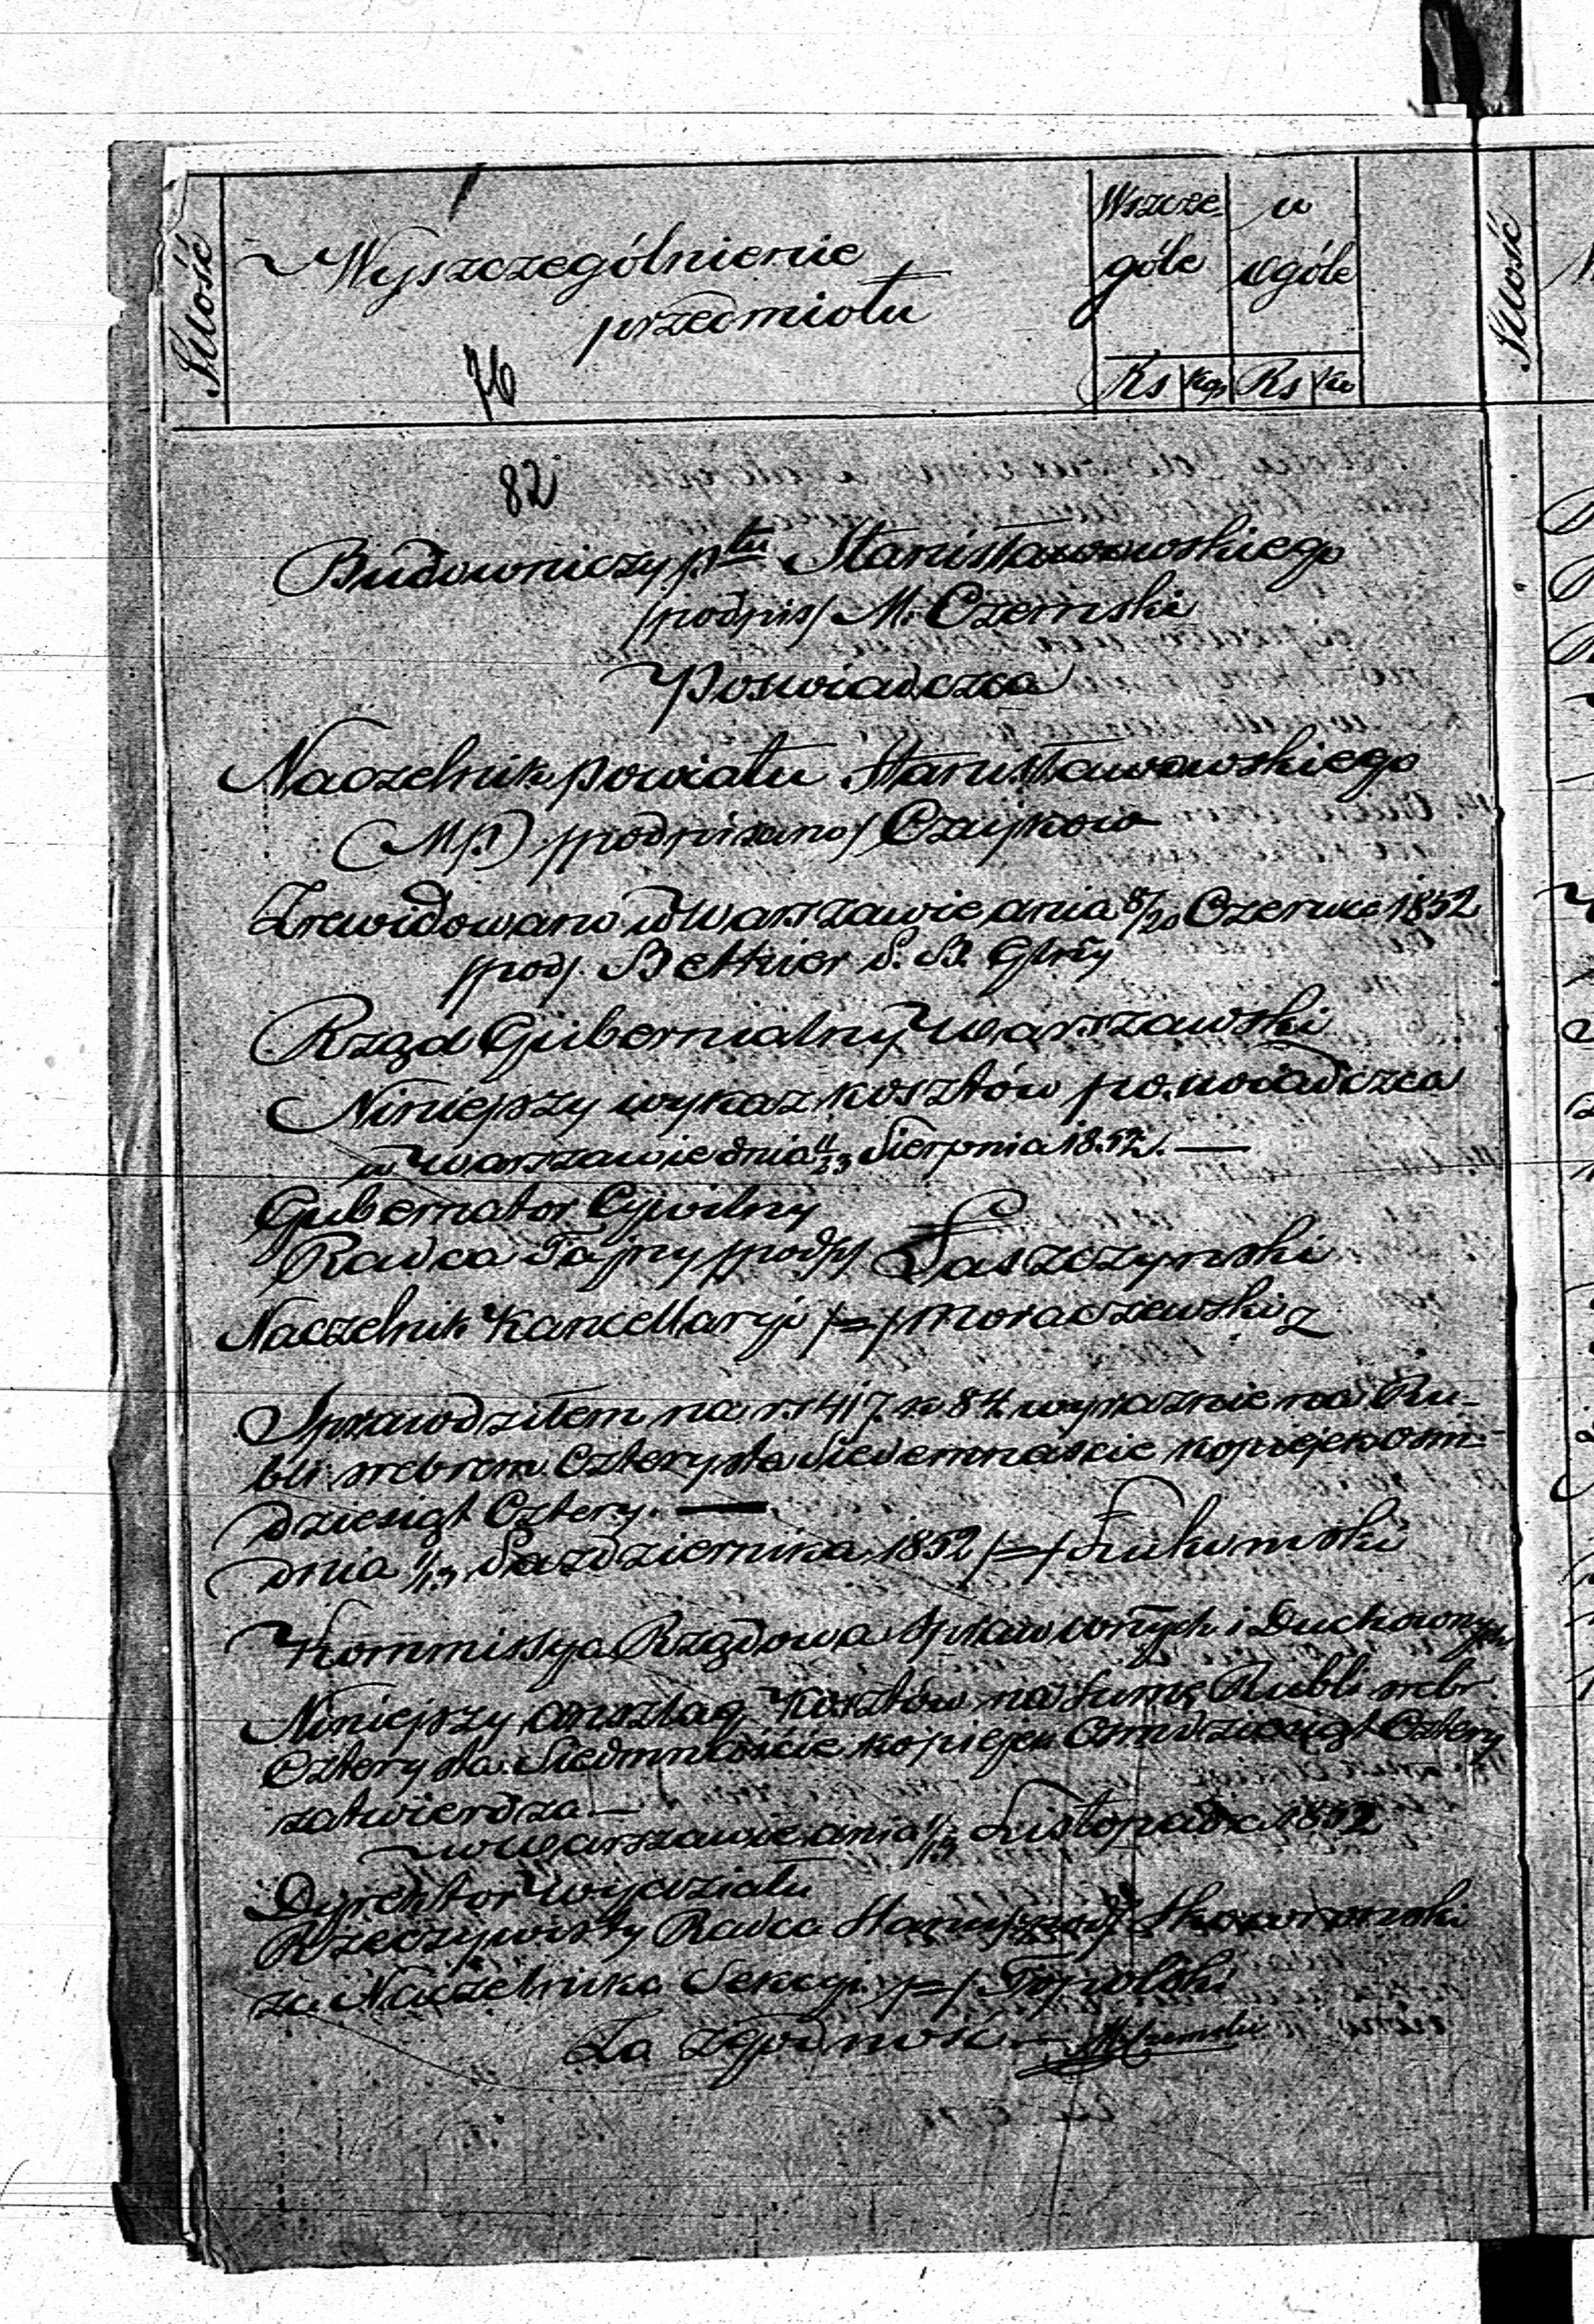 Ilość
Wyszczególnienie
przedmiotu
Wszcze
góle
w
ogóle
Rs kop Rs ko
Ilość
76
82
Budowniczy ptu Stanisławowskiego
/podpis/ M. Czernski
Poswiadcza
Naczelnik powiatu Stanisławowskiego
(Mp) /podpisano/
Zrewidowano w Warszawie dnia 8/20 Czerwca 1852
/pod/ S. B. Gbrny
Rząd Gubernialny Warszawski
Niniejszy wykaz kosztów poswiadcza
w Warszawie dnia 11/23 Sierpnia 1852. —
Gubernator Cywilny
Radca Tajny /podp/ Łaszczynski
Naczelnik Kancellaryi /=/ Moraczewski
Sprawdziłem na rs 417. k 84. wyraznie na Ru-
bli srebrem Czterysta Siedemnaście kopiejek Osm-
dziesiąt Cztery. —
dnia 1/13 Pazdziernika 1852 /=/ Łukomski
Kommissya Rządowa Spraw Wnych i Duchownych
Niniejszy anszlag Kosztów na Sumę Rubli srebr
Czterysta Siedmnaście kopiejek Osmdziesiąt Cztery
zatwierdza —
w Warszawie dnia 1/13 Listopada 1852
Dyrektor Wydziału
Rzeczywisty Radca Stanu /podp/ Skowronski
za Naczelnika Sekcyi /=/ Topolski
Za Zgodność —